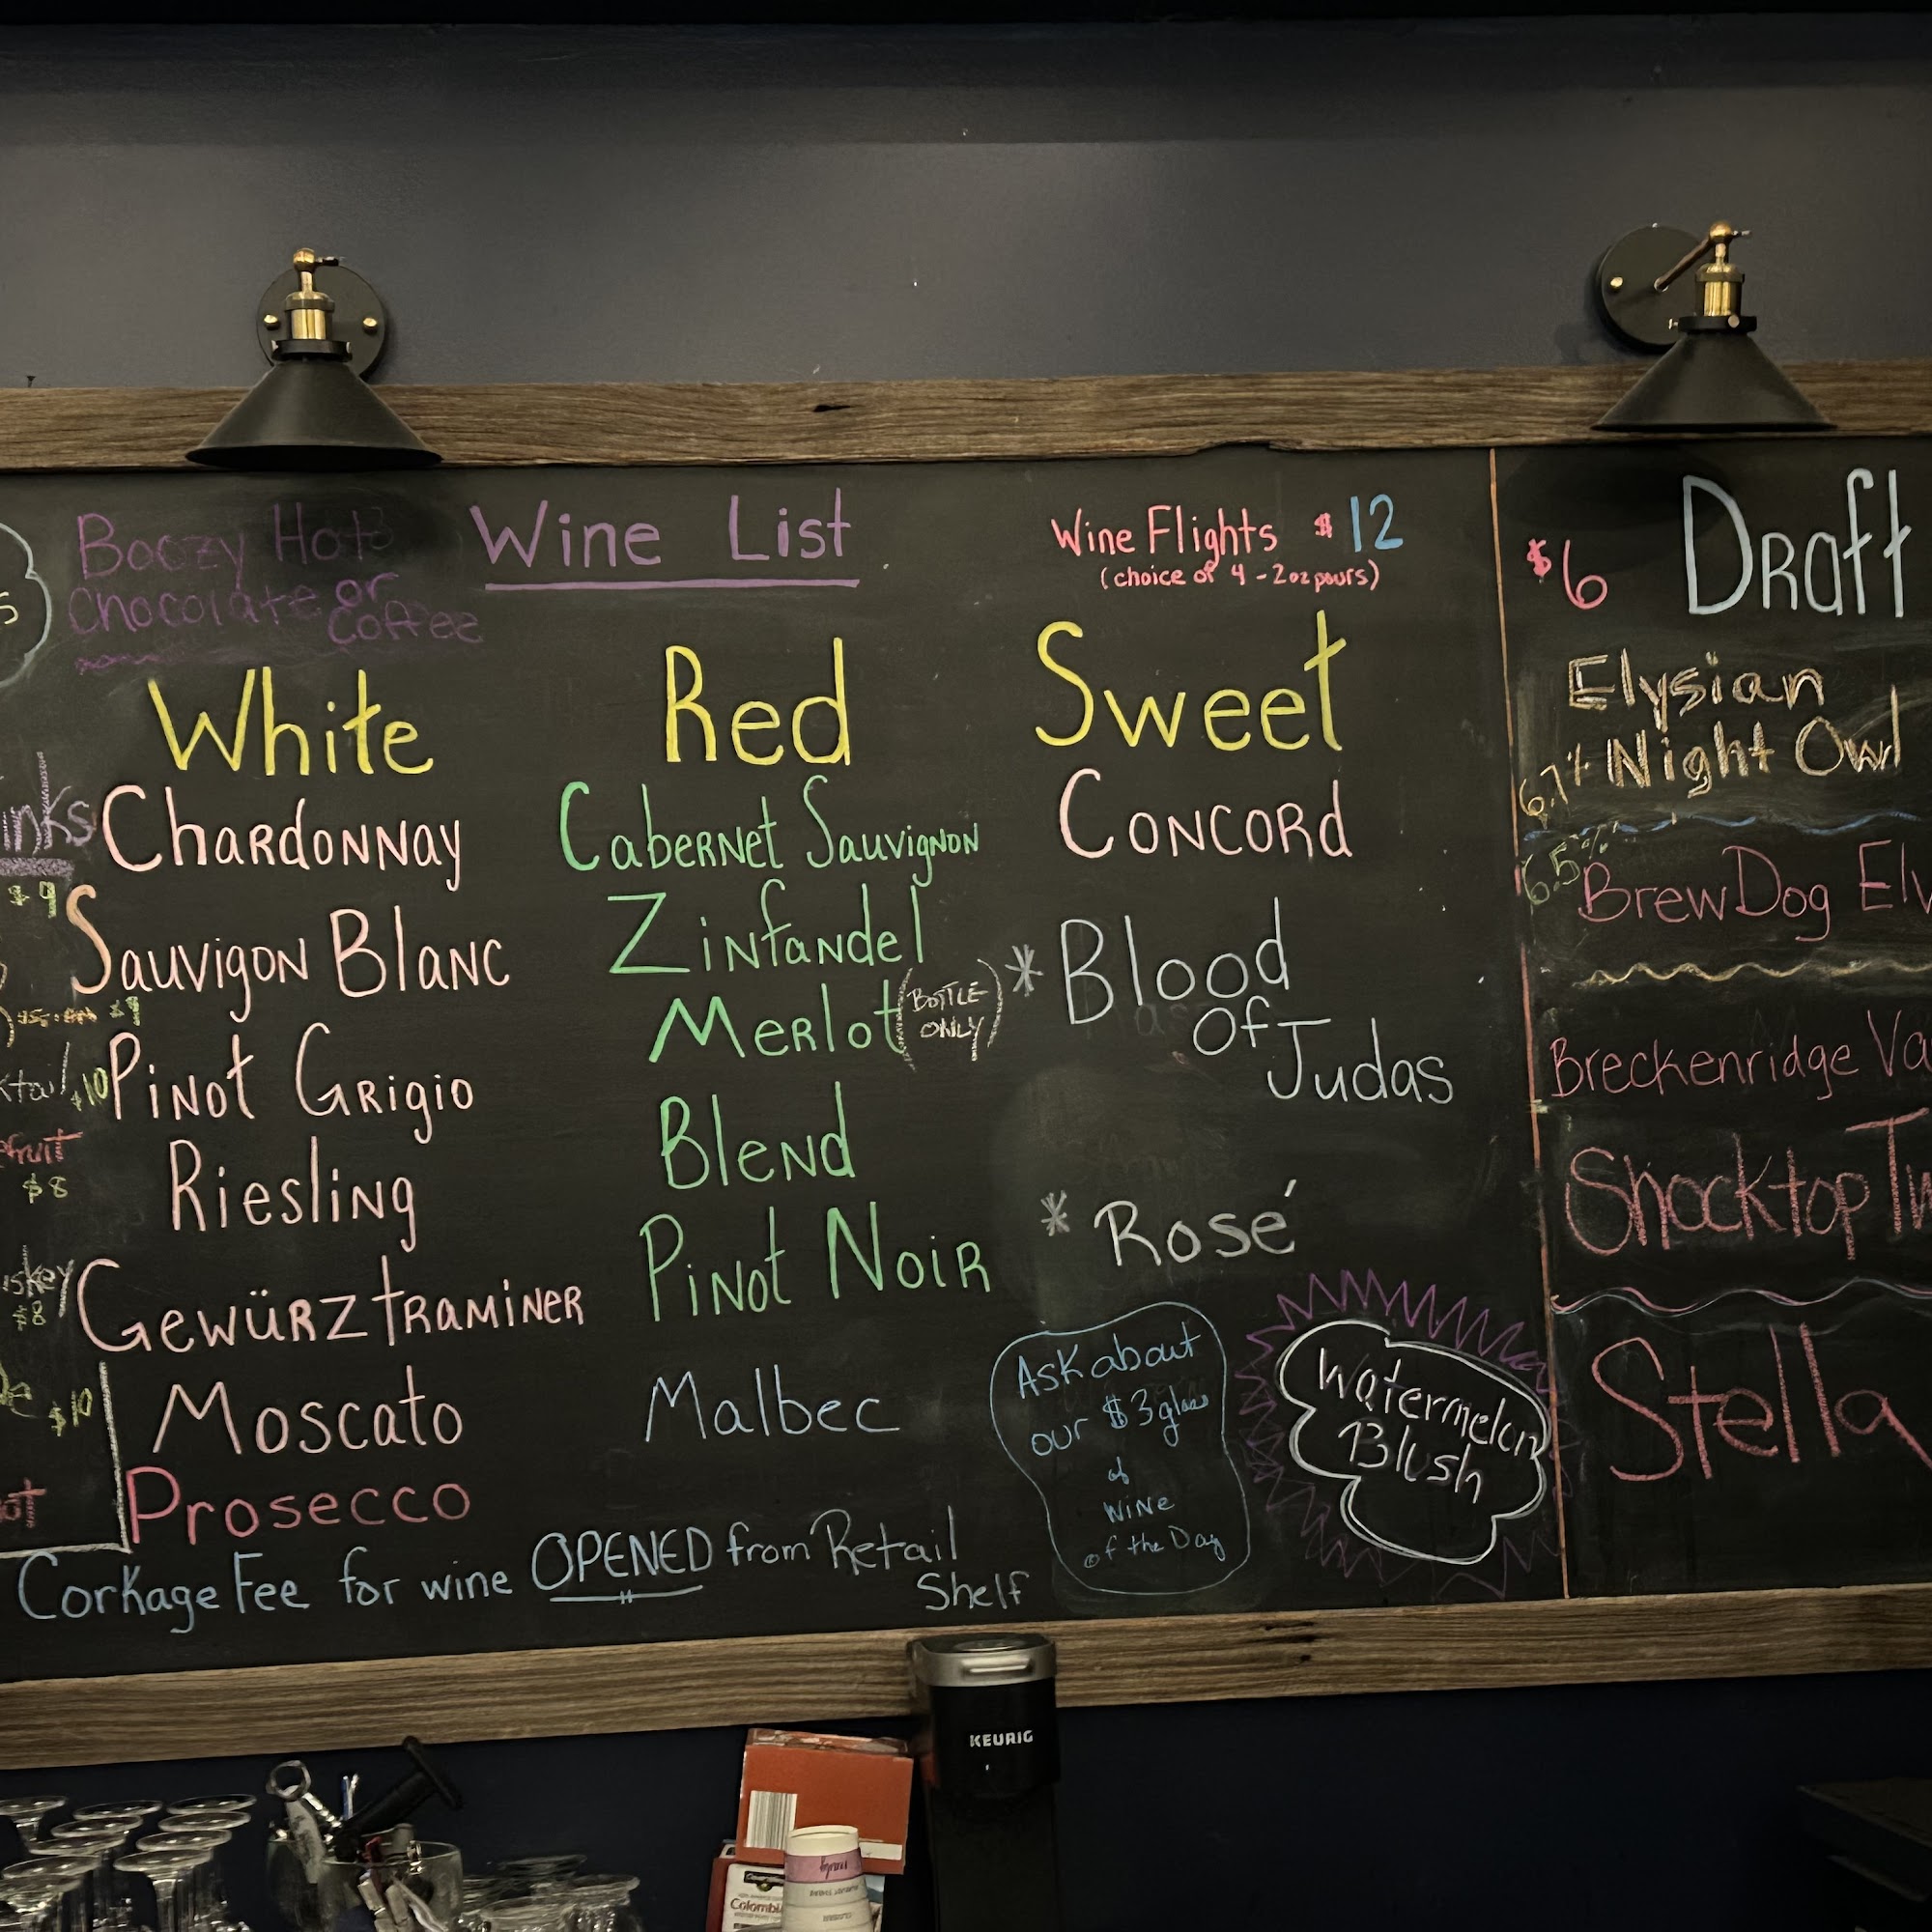 Boozy Hot
Chocolate or
Coffee
Wine List
Wine Flights $12
(choice of 4 - 2oz pours)
White
Chardonnay
Sauvigon Blanc
Pinot Grigio
Riesling
Gewürztraminer
Moscato
Prosecco
Red
Cabernet Sauvignon
Zinfandel
Merlot (BOTTLE
ONLY)
Blend
Pinot Noir
Malbec
Sweet
Concord
* Blood
Of
Judas
* Rosé
Ask about
our $3 glass
of
wine
of the Day
Watermelon
Blush
Corkage Fee for wine OPENED from Retail
Shelf
$6 Draft
Elysian
6.7% Night Owl
6.5% BrewDog Elv
Breckenridge Va
Shocktop Tw
Stella
$9
$10
$8
$8
$10
KEURIG
Colombi